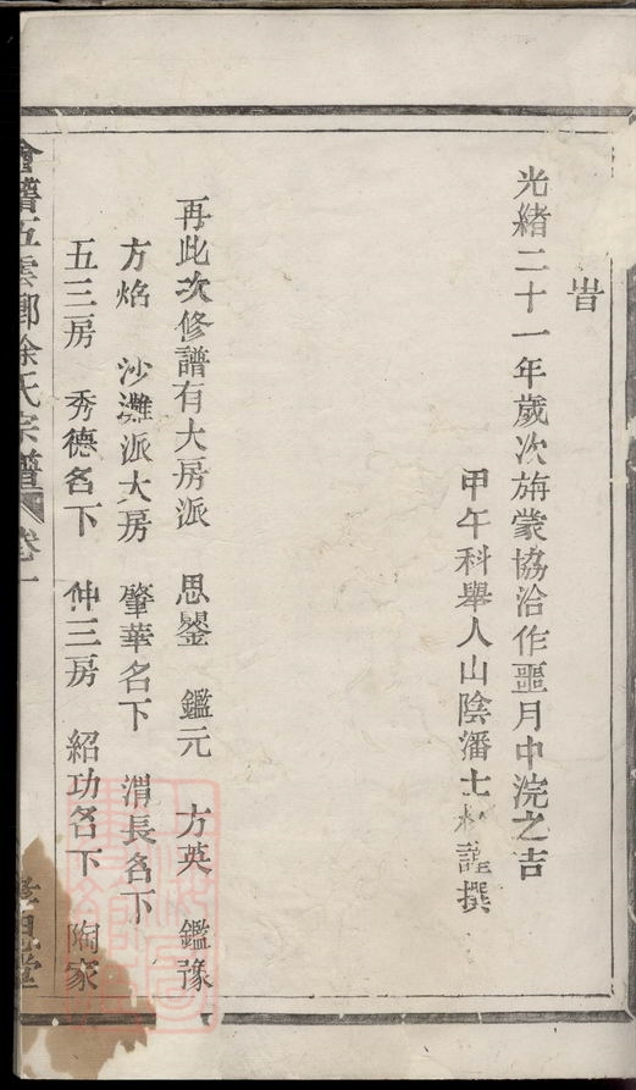 旹
光緒二十一年歲次旃蒙協洽作噩月中浣之吉
甲午科舉人山陰潘士 謹撰
再此次修譜有大房派 思鋆 鑑元 方英 鑑豫
方焰 沙灘派大房 肇華名下 渭長名下
五三房 秀德名下 仲三房 紹功名下 陶家
會籍五雲鄉徐氏宗譜 卷一 堂